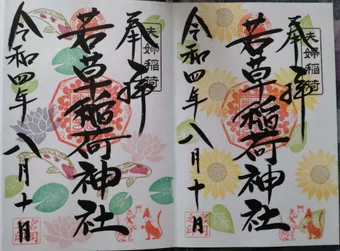 奉拝
夫婦稲荷
若草稲荷神社
令和四年 八月十日
奉拝
夫婦稲荷
若草稲荷神社
令和四年 八月十日